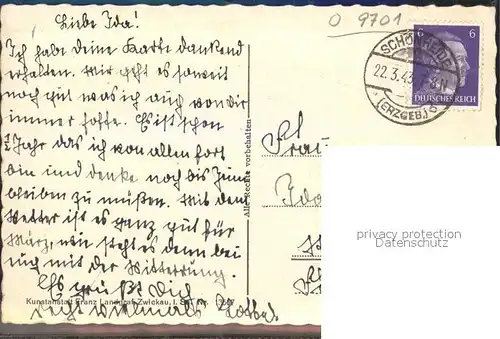 Liebe Ida!
Ich habe deine Karte dankend
erhalten. Mir geht es soweit
noch gut was ich auch von dir
immer hoffe. Es ist schon
½ Jahr das ich von allem fort
bin und denke noch bis Juni
bleiben zu müßen. Mit dem
Wetter ist es ganz gut für
März, wie steht es denn bei
mit der Witterung.
Es grüßt Dich
recht vielmals
Kunstanstalt Franz Landgraf, Zwickau, i. Sa. Nr.
Alle Rechte vorbehalten
O 9701
6 6
DEUTSCHES REICH
22.3.43
(ERZGEB)
Frau
Ida
privacy protection
Datenschutz